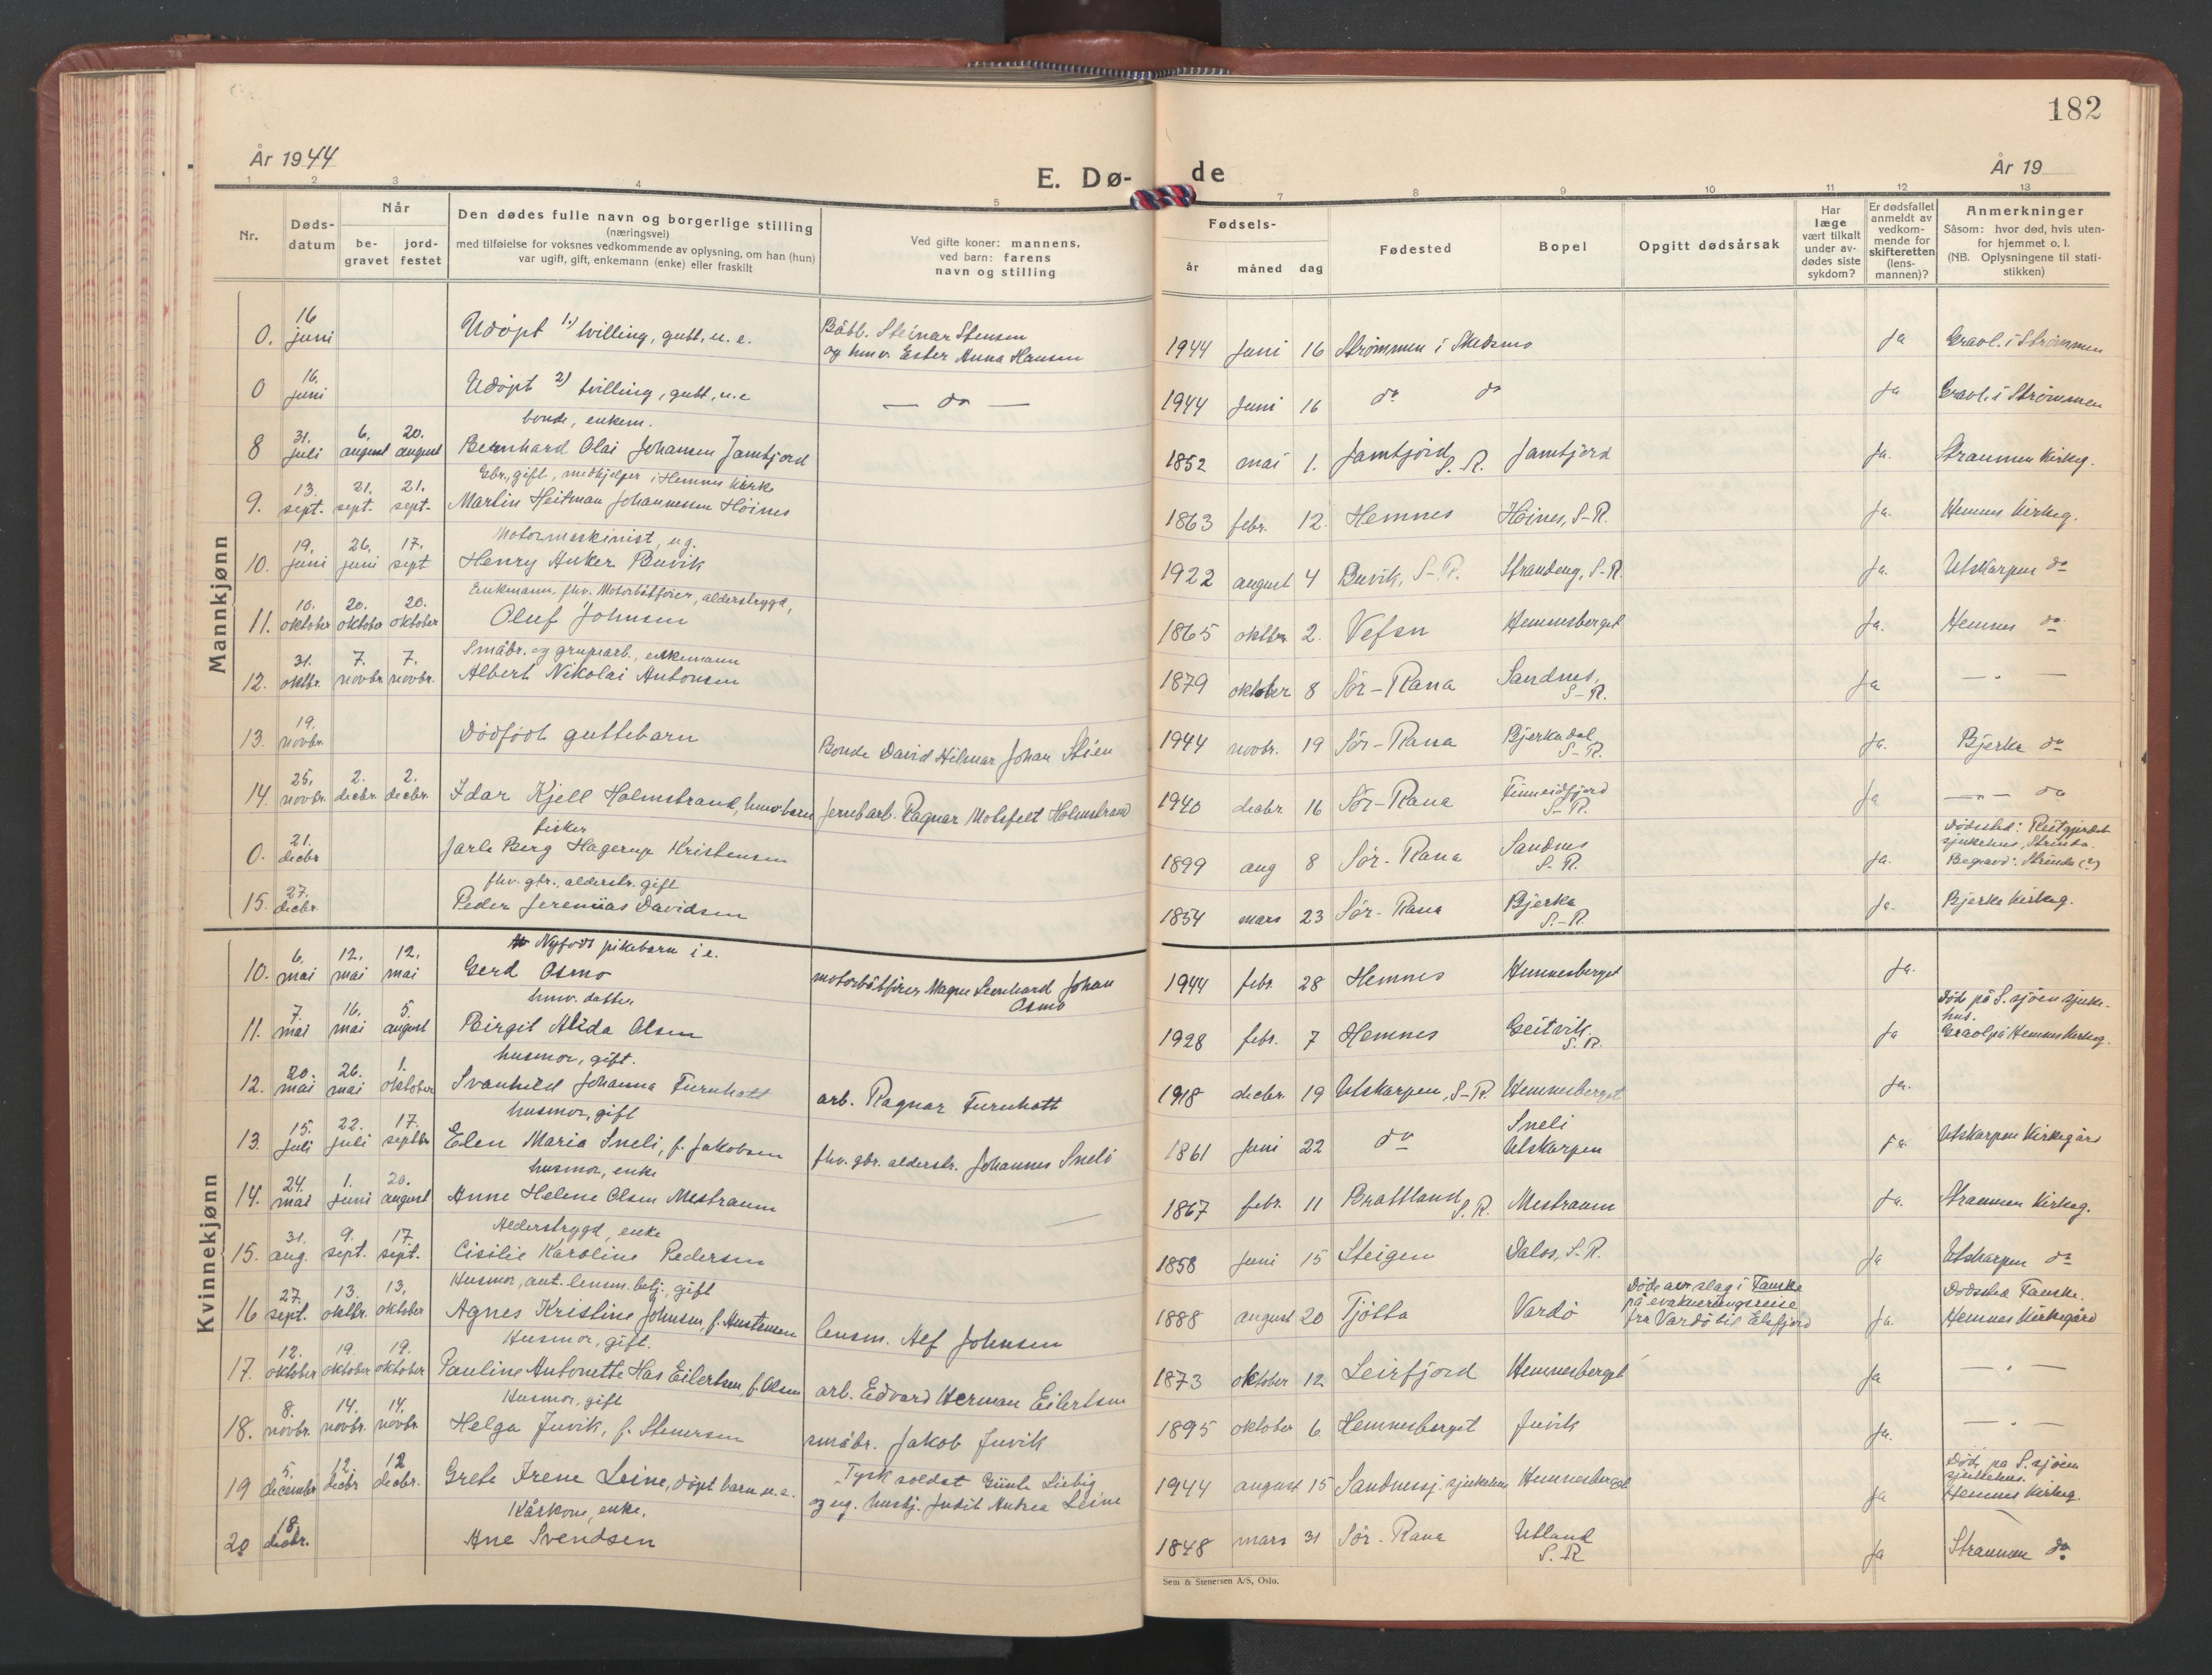 182
År 1944
E. Dø-
de
År 19
1 2 3 4 5 7 8 9 10 11 12 13
Nr.
Døds-
datum
Når
be-
gravet
jord-
festet
Den dødes fulle navn og borgerlige stilling
(næringsvei)
med tilføielse for voksnes vedkommende av oplysning, om han (hun)
var ugift, gift, enkemann (enke) eller fraskilt
Ved gifte koner: mannens,
ved barn: farens
navn og stilling
Fødsels-
år måned dag
Fødested
Bopel
Opgitt dødsårsak
Har
læge
vært tilkalt
under av-
dødes siste
sykdom?
Er dødsfallet
anmeldt av
vedkom-
mende for
skifteretten
(lens-
mannen)?
Anmerkninger
Såsom: hvor død, hvis uten-
for hjemmet o. l.
(NB. Oplysningene til stati-
stikken)
Mannkjønn
0. 16 juni Udøpt 1) tvilling, gutt, u. e. Båtb. Steinar Stensen
og hmv. Ester Anna Hansen 1944 juni 16 Strømmen i Skedsmo ja Gravl. i Strømmen
0 16. juni Udøpt 2) tvilling, gutt, u. e — do — 1944 juni 16 do do ja Gravl. i Strømmen
bonde, enkem.
8 31. juli 6. august 20. august Bernhard Olai Johansen Jamtjord 1852 mai 1. Jamtjord S. R. Jamtjord ja. Straumen Kirkeg.
Gbr., gift, medhjelper i Hemnes Kirke
9. 13. sept. 21. sept. 21. sept. Martin Heitman Johannessen Höines 1863 febr. 12. Hemnes Höines, S-R. ja. Hemnes Kirkeg.
Motormaskinist, ug.
10. 19. juni 26. juni 17. sept Henry Anker Buvik 1922 august 4 Buvik, S-R. Strandeng, S-R. ja. Utskarpen do
Enkmann. fhv. Motorbåtfører, alderstrygd,
11. 10. oktober 20. oktober 20. oktober Oluf Johnsen 1865 oktbr. 2. Vefsn Hemnesberget ja. Hemnes do
Småbr. og grubearb., enkemann
12. 31. oktbr. 7. novbr. 7. novbr. Albert Nikolai Antonsen 1879 oktober 8 Sör-Rana Sandnes, S-R. ja — " —
13. 19. novbr. Dödfödt guttebarn Bonde David Hilmar Johan Stien 1944 novbr. 19 Sör-Rana Bjerkadal S-R. ja. Bjerka do
14. 25. novbr. 2. decbr. 2. decbr. Idar Kjell Holmstrand, hmv. barn Jernb arb. Ragnar Motsfelt Holmstrand 1940 decbr. 16 Sör-Rana Finneidfjord S-R. ja — " — do
fisker
0. 21. decbr Jarle Berg Hagerup Kristensen 1899 aug 8 Sör-Rana Sandnes S-R. ja. Dödssted: Reitgjerdet
sjukehus, Strinda.
Begravd: Strinda (?)
fhv. gbr., alderstr. gift
15. 27. decbr. Peder Jeremias Davidsen 1854 mars 23 Sör-Rana Bjerka S.-R. ja- Bjerka Kirkeg.
Kvinnekjønn
Nyfödt pikebarn i e.
10. 6. mai 12. mai 12. mai Gerd Osmo motorbåtfører Magne Leonhard Johan
Osmo 1944 febr. 28 Hemnes Hemnesberget ja.
hmv. datter
11. 7. mai 16. mai 5. august Birgit Alida Olsen 1928 febr. 7 Hemnes Geitvik S. R. ja Död på S. sjöen sjuke-
hus.
Gravl på Hemnes Kirkeg.
husmor, gift.
12. 20. mai 26. mai 1. oktober Svanhild Johanna Furuhatt arb. Ragnar Furuhatt 1918 decbr. 19 Utskarpen, S-R Hemnesberget ja.
husmor, gift
13. 15. juli 22. juli 17. septbr Elen Maria Sneli, f. Jakobsen fhv. gbr. alderstr. Johannes Sneli 1861 juni 22 do Sneli
Utskarpen ja. Utskarpen Kirkegård
husmor, enke
14. 24. mai 1. juni 20. august Anne Helene Olsen Mestraum 1867 febr. 11 Brattland S. R. Mestraum ja. Straumen Kirkeg.
Alderstrygd, enke
15. 31. aug. 9. sept. 17. sept. Cisilie Karoline Pedersen 1858 juni 15 Steigen Dalos, S-R. ja Utskarpen do
Husmor, aut. lensm. betj., gift
16 27. sept. 13. oktbr. 13, oktober Agnes Kristine Johnsen, f. Austensen lensm. Alf Johnsen 1888 august 20 Tjötta Vardö Död av slag i Fauske
på evakueringsreise
fra Vardö til Elsfjord ja. Dödssted Fauske.
Hemnes Kirkegård
Husmor, gift.
17. 12. oktober 19. oktober 19. oktober Pauline Antonette Has Eilertsen, f. Olsen arb. Edvard Herman Eilertsen 1873 oktober 12 Leirfjord Hemnesberget ja — " —
Husmor, gift
18. 8. novbr. 14. novbr. 14. novbr. Helga Juvik, f. Stenersen småbr. Jakob Juvik 1895 oktober 6 Hemnesberget Juvik ja. — " —
19 5. decembr 12. decbr 12 decbr. Grete Irene Leine, döpt barn u. e. Tysk soldat Günte Liebig
og ug. hustj. Judit Andrea Leine 1944 august 15 Sandnessj. sjukehus Hemnesberget ja Död på S. sjöen
sjukehus.
Hemnes Kirkeg.
Kårkone, enke.
20 18. decbr. Ane Svendsen 1848 mars 31 Sör-Rana Utland S. R ja Straumen do
Sem & Stenersen A/S, Oslo.